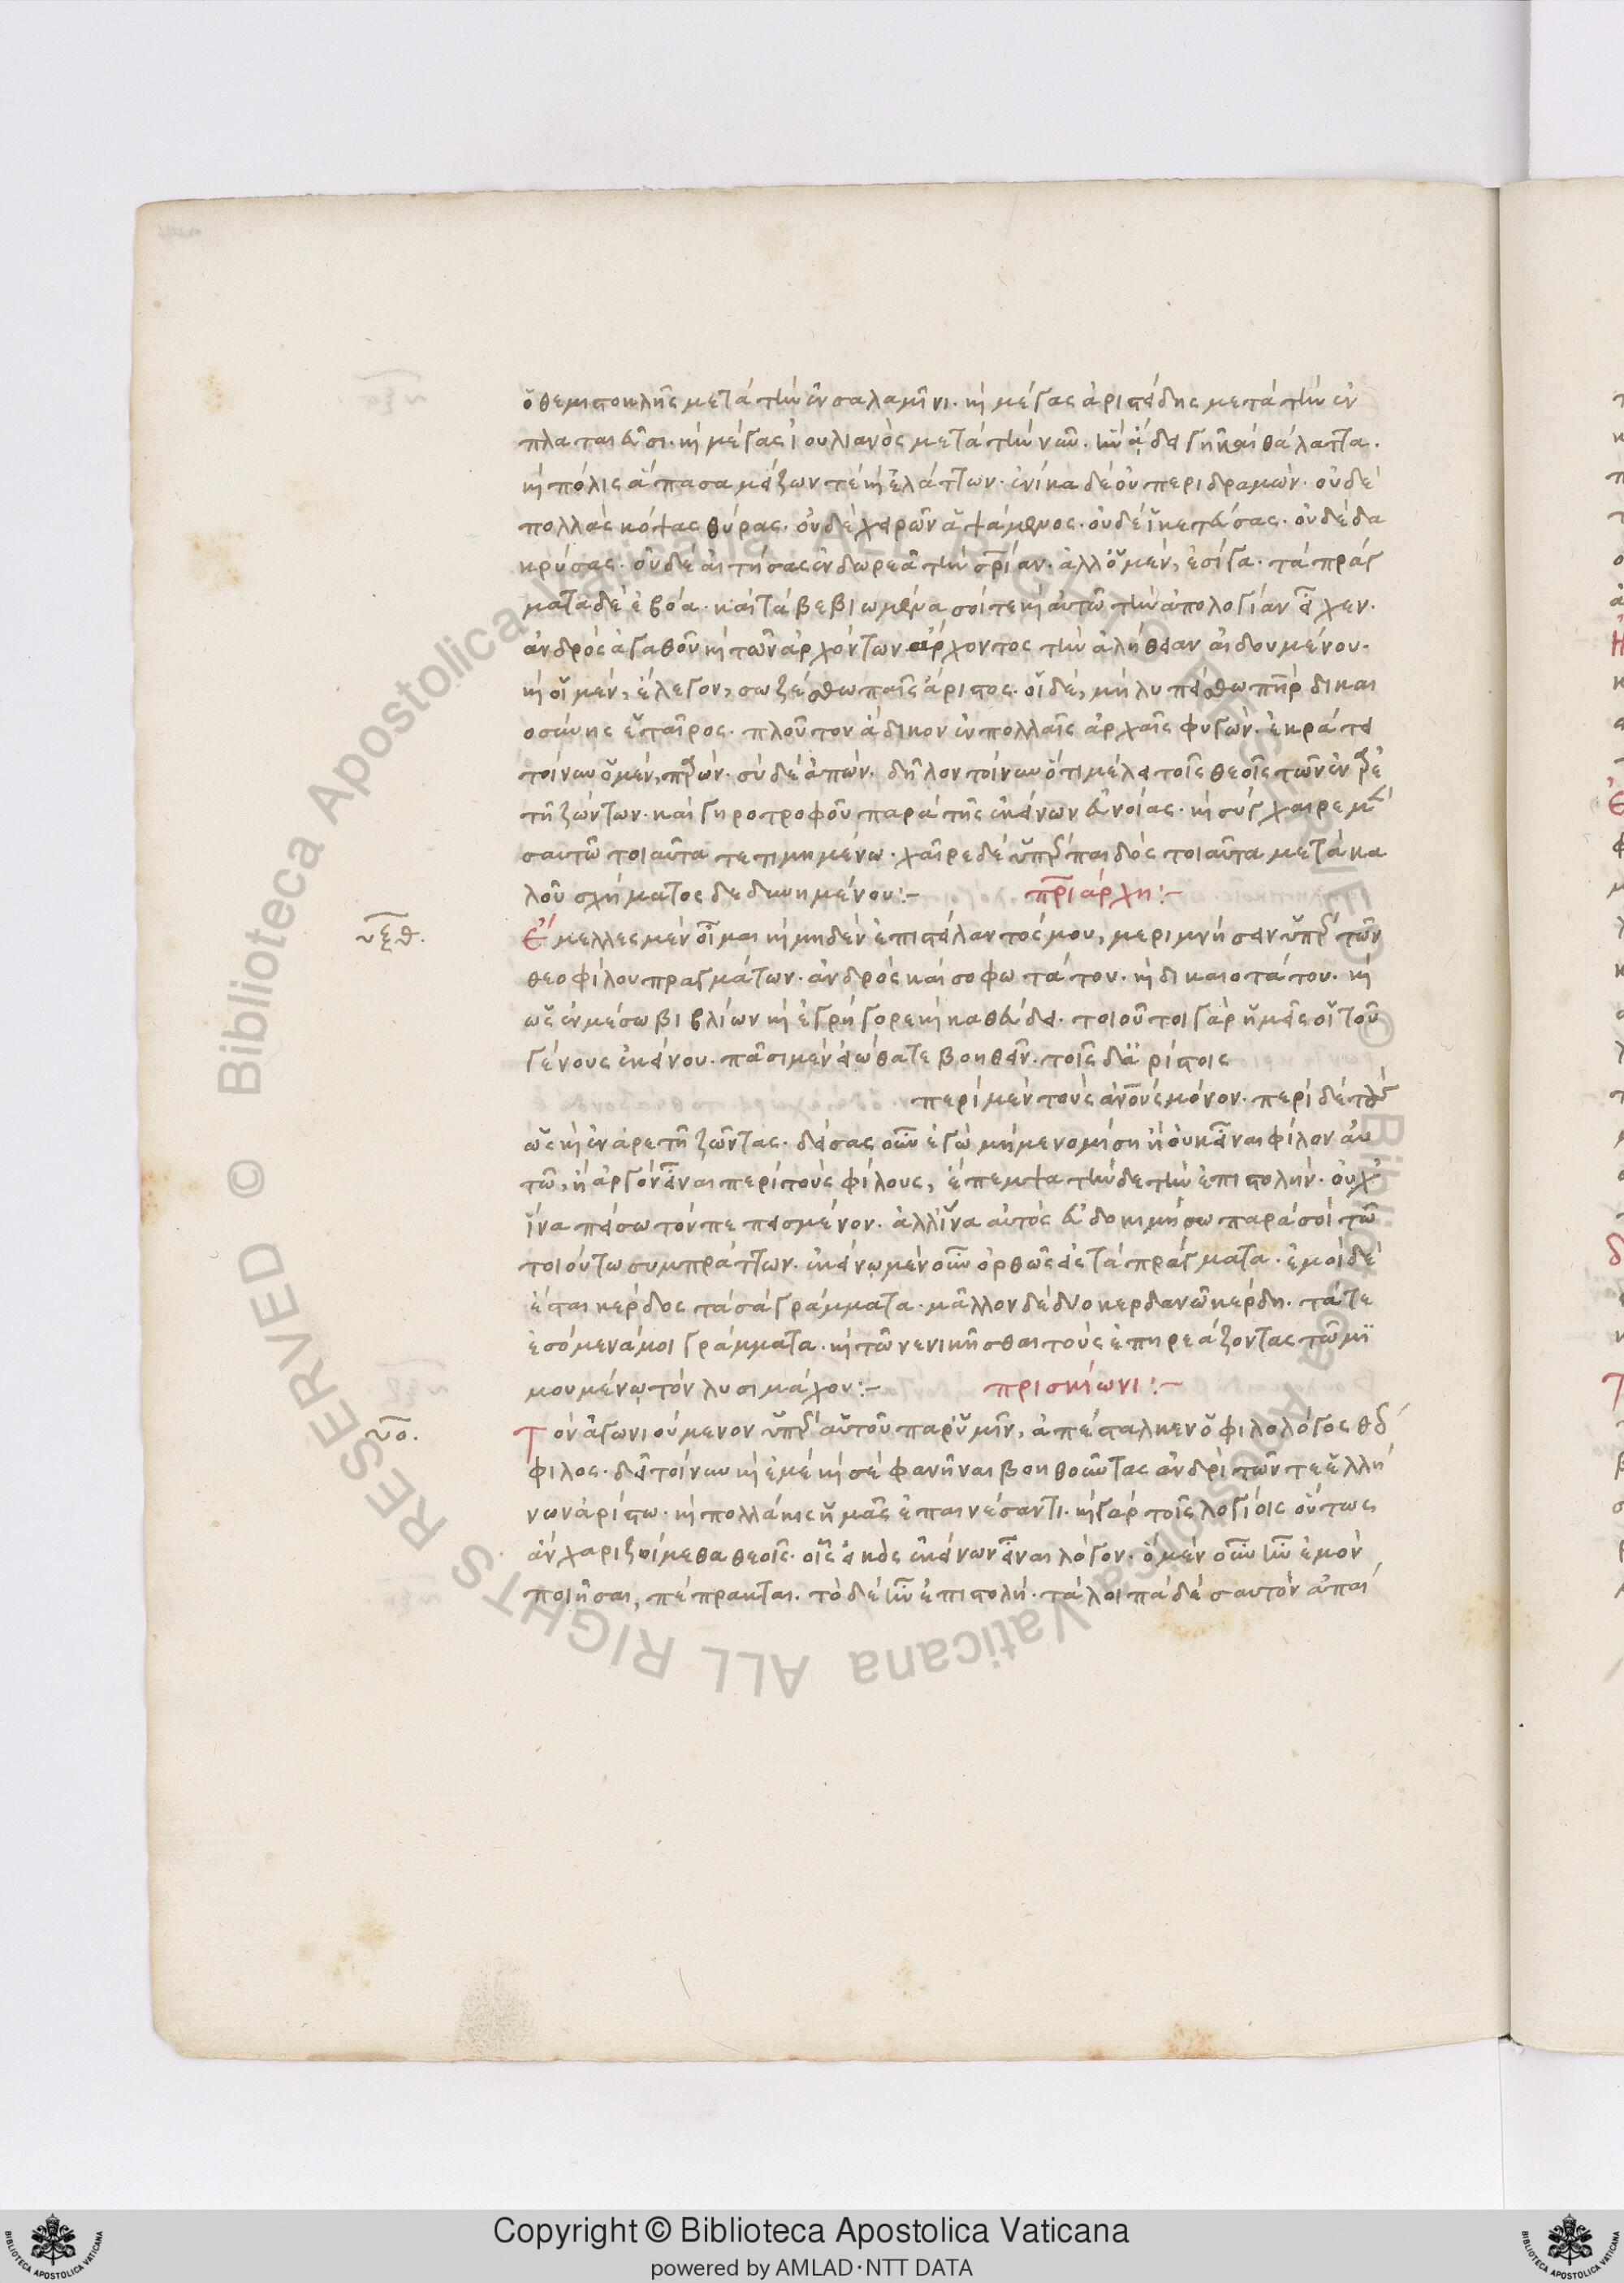 ὁ θεμιστοκλῆς μετὰ τὴν ἐν σαλαμῖνι. καὶ μέγας ἀριστείδης μετὰ τὴν ἐν
πλαταιεῦσι. καὶ μέγας ἰουλιανὸς μετὰ τὴν νῦν. ἣν ᾄδει γῆ καὶ θάλαττα.
καὶ πόλις ἅπασα μείζων τε καὶ ἐλάττων. ἐνίκα δὲ οὐ περιδραμὼν. οὐδὲ
πολλὰς κόψας θύρας. οὐδὲ χειρῶν ἁψάμενος. οὐδὲ ἱκετεύσας. οὐδὲ δα
κρύσας. οὐδὲ αἰτήσας ἐν δωρεᾷ τὴν σρίαν. ἀλλ' ὁ μὲν, ἐσίγα. τὰ πράγ
ματα δὲ ἐβόα. καὶ τὰ βεβιωμένα σοί τε καὶ αὐτῷ τὴν ἀπολογίαν εἶχεν.
ἀνδρὸς ἀγαθοῦ καὶ τῶν ἀρχόντων ἄρχοντος τὴν ἀλήθειαν αἰδουμένου.
καὶ οἱ μὲν, ἔλεγον, σωζέσθω παῖς ἄριστος. οἱ δὲ, μὴ λυπείσθω πὴρ δικαι
οσύνης ἑταῖρος. πλοῦτον ἄδικον ἐν πολλαῖς ἀρχαῖς φυγών. ἐκράτει
τοίνυν ὁ μὲν, παρών. σὺ δὲ ἀπών. δῆλον τοίνυν ὅτι μέλει τοῖς θεοῖς τῶν ἐν ἀρε
τῇ ζώντων. καὶ γηροτροφοῦ παρὰ τῆς ἐκείνων εὐνοίας. καὶ σύγχαιρε μὲν
σαυτῷ τοιαῦτα τετιμημένῳ. χαῖρε δὲ ὑπὲρ παιδὸς τοιαῦτα μετὰ κα
λοῦ σχήματος δεδιωημένου:- πριάρχη:-
υξθ. Ἔμελλες μὲν οἶμαι καὶ μηδὲν ἐπιστείλαντός μου, μεριμνήσειν ὑπὲρ τῶν
θεοφίλου πραγμάτων. ἀνδρὸς καὶ σοφωτάτου. καὶ δικαιοτάτου. καὶ
ὡς ἐν μέσῳ βιβλίων καὶ ἐγρήγορε καὶ καθεύδει. τοιοῦτοι γὰρ ἡμεῖς οἱ τοῦ
γένους ἐκείνου. πᾶσι μὲν εἰώθατε βοηθεῖν. τοῖς δ' ἀρίστοις
περὶ μὲν τοὺς ἀνοὺς μόνον. περὶ δὲ τοὺς
ὡς καὶ ἐν ἀρετῇ ζῶντας. δείσας οὖν ἐγὼ μή με νομίσῃ ἢ οὐκ εἶναι φίλον αὐ
τῷ, ἢ ἀργὸν εἶναι περὶ τοὺς φίλους, ἔπεμψα τήνδε τὴν ἐπιστολήν. οὐχ
ἵνα πείσω τὸν πεπεισμένον. ἀλλ' ἵνα αὐτὸς εὐδοκιμήσω παρὰ σοὶ τῷ
τοιούτῳ συμπράττων. ἐκείνῳ μὲν οὖν ὀρθῶς εἰς τὰ πράγματα. ἐμοὶ δὲ
ἔσται κέρδος τὰ σὰ γράμματα. μᾶλλον δὲ δύο κερδανῶ κέρδη. τά τε
ἐσόμενά μοι γράμματα. καὶ τῷ νενικῆσθαι τοὺς ἐπηρεάζοντας τῷ μι
μουμένῳ τὸν λυσιμάχου:- πρισκίωνι:-
υο. Τὸν ἀγωνιούμενον ὑπὲρ αὑτοῦ παρ' ὑμῖν, ἀπέσταλκεν ὁ φιλολόγος θεό
φιλος. δεῖ τοίνυν καὶ ἐμὲ καὶ σὲ φανῆναι βοηθοῦντας ἀνδρὶ τῶν τε ἑλλή
νων ἀρίστῳ. καὶ πολλάκις ἡμᾶς ἐπαινέσαντι. καὶ γὰρ τοῖς λογίοις οὕτως
ἂν χαριζοίμεθα θεοῖς. οἷς εἰκὸς ἐκείνων εἶναι λόγον. ὃ μὲν οὖν ἦν ἐμὸν
ποιῆσαι, πέπρακται. τὸ δὲ ἦν ἐπιστολή. τὰ λοιπὰ δὲ σαυτὸν ἀπαί
© Biblioteca Apostolica Vaticana ALL RIGHTS RESERVED
Copyright © Biblioteca Apostolica Vaticana
powered by AMLAD·NTT DATA